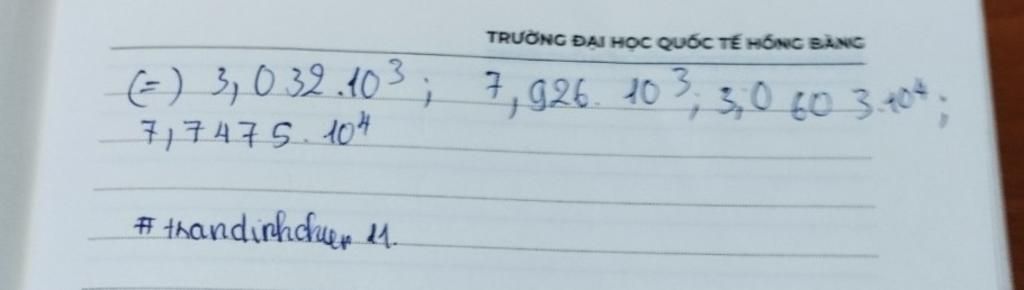 TRƯỜNG ĐẠI HỌC QUỐC TẾ HỒNG BÀNG
(=) 3,032.10³; 7,926.10³; 3,0603.10⁴;
7,7475.10⁴
#thandinhchuen 11.